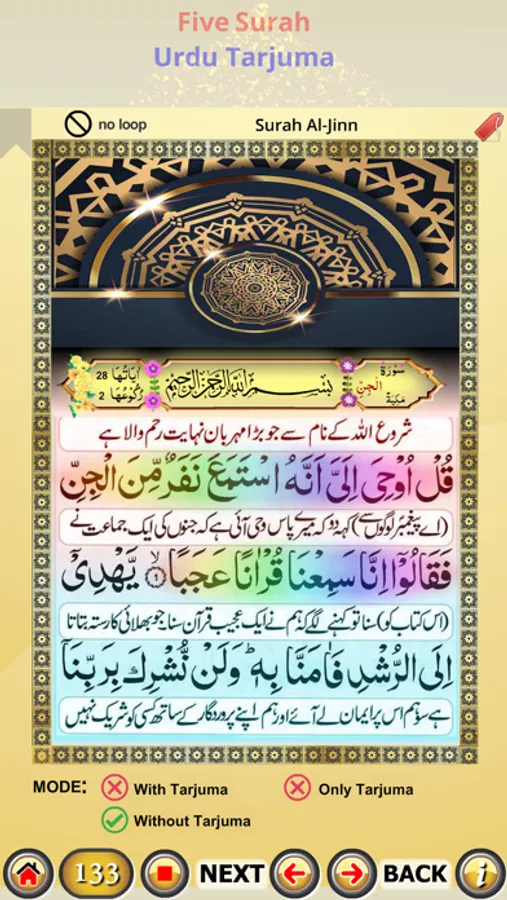 Five Surah
Urdu Tarjuma
no loop
Surah Al-Jinn
سُورَةُ الْجِنِّ مَكِّيَّةٌ
بِسْمِ اللّٰهِ الرَّحْمٰنِ الرَّحِيْمِ
اٰيَاتُهَا 28
رُكُوْعُهَا 2
شروع اللہ کے نام سے جو بڑا مہربان نہایت رحم والا ہے
قُلْ اُوْحِیَ اِلَیَّ اَنَّهُ اسْتَمَعَ نَفَرٌ مِّنَ الْجِنِّ
(اے پیغمبر لوگوں سے) کہہ دو کہ میرے پاس وحی آئی ہے کہ جنوں کی ایک جماعت نے
فَقَالُوْۤا اِنَّا سَمِعْنَا قُرْاٰنًا عَجَبًا ۙ۝۱ یَّهْدِیْۤ
(اس کتاب کو) سنا تو کہنے لگے کہ ہم نے ایک عجیب قرآن سنا جو بھلائی کا رستہ بتاتا
اِلَی الرُّشْدِ فَاٰمَنَّا بِهٖ ؕ وَلَنْ نُّشْرِكَ بِرَبِّنَاۤ
ہے سو ہم اس پر ایمان لے آئے اور ہم اپنے پروردگار کے ساتھ کسی کو شریک نہیں
MODE: With Tarjuma Only Tarjuma
Without Tarjuma
133 NEXT BACK i